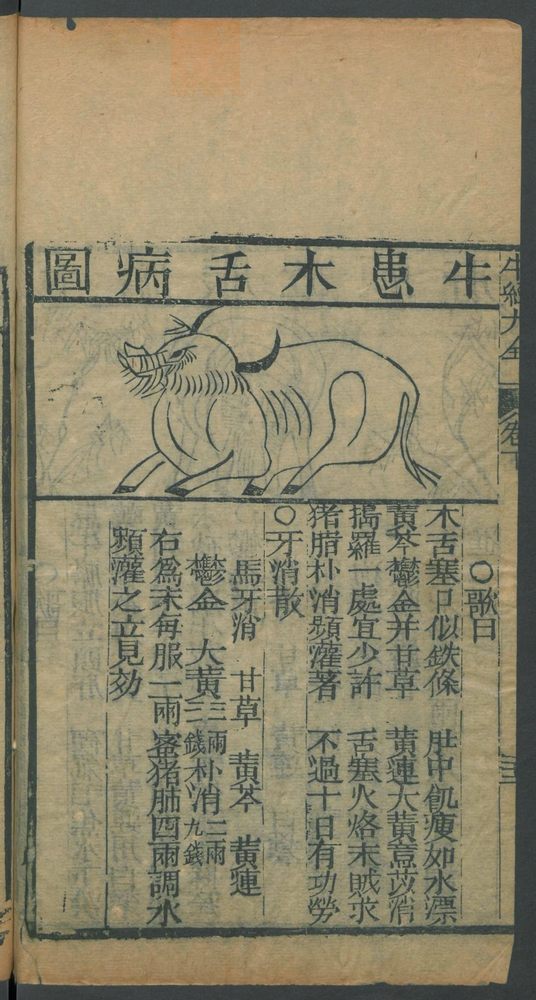 牛患木舌病圖
○歌曰
木舌塞口似鉄條 肚中飢瘦如水漂
黃芩鬱金并甘草 黃連大黃意苡消
搗羅一處宜少許 舌塞火烙未賊求
猪脂朴消頻灌著 不過十日有功勞
○牙消散
馬牙消 甘草 黃芩 黃連
鬱金 大黃三兩三錢朴消二兩九錢
右為末每服二兩蜜猪脂四兩調水
頻灌之立見効
牛經大全 卷下